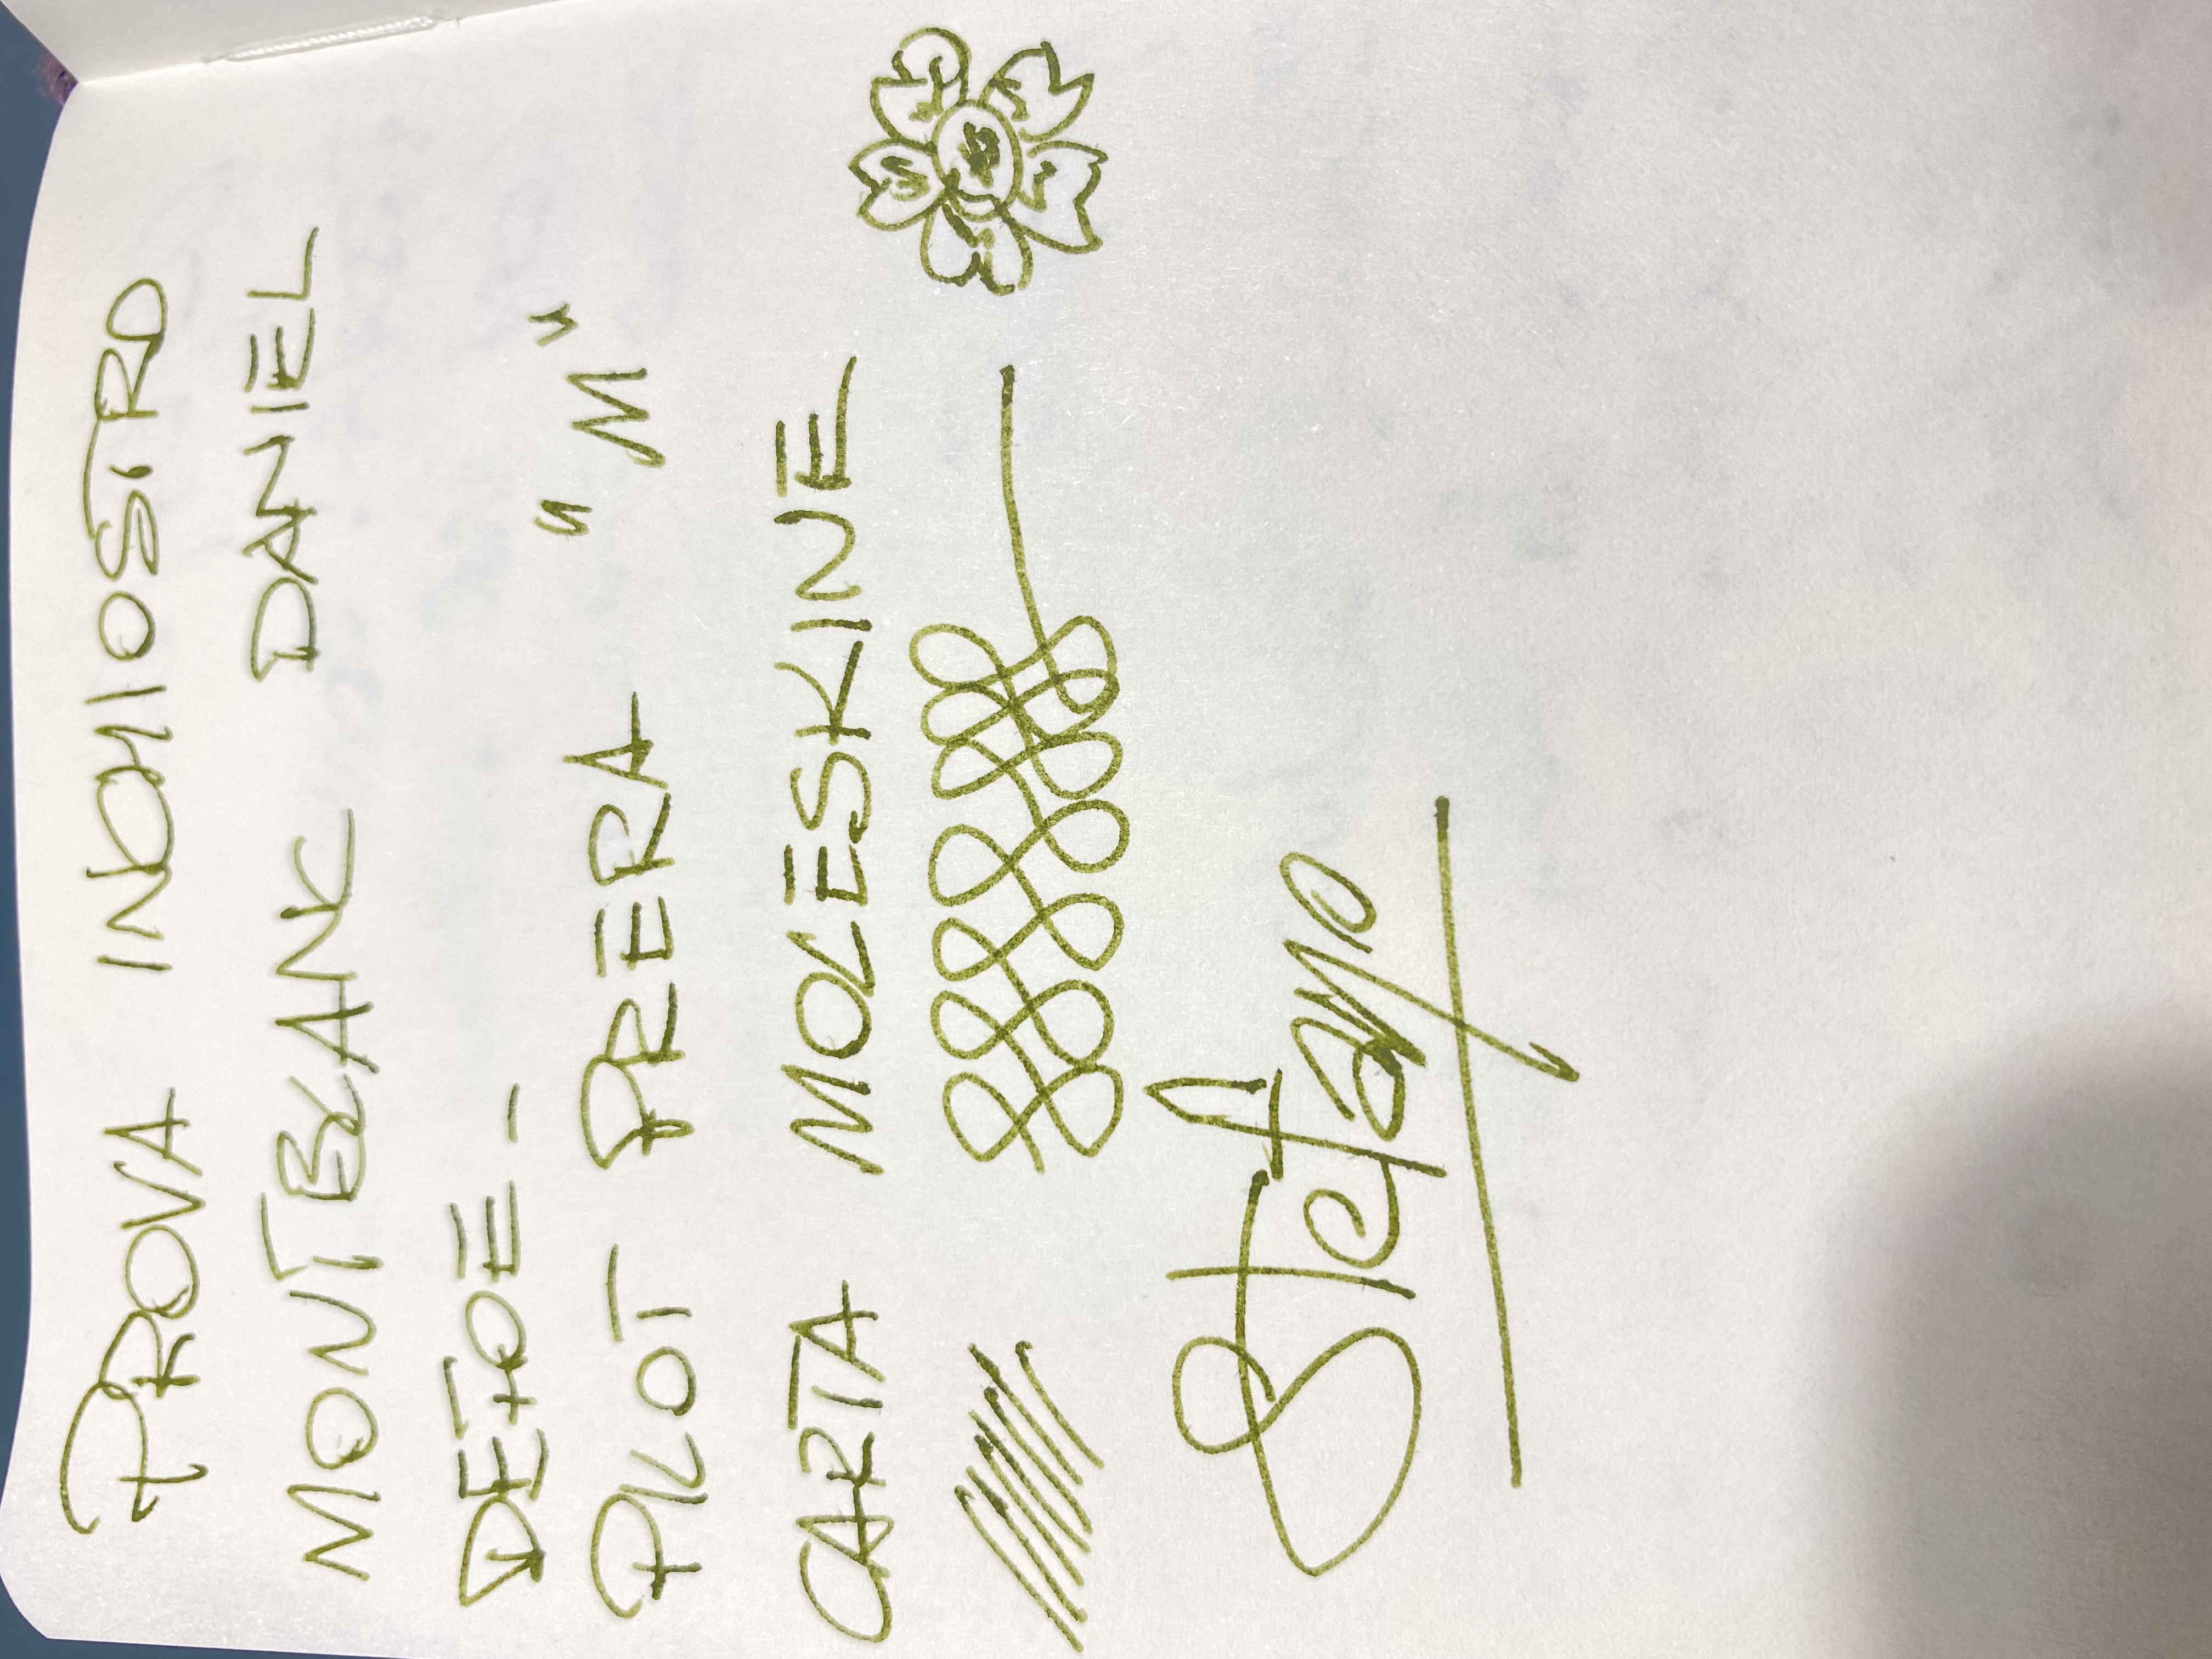 PROVA INCHIOSTRO
MONTBLANC DANIEL
DEFOE -
PILOT PRERA "M"
CARTA MOLESKINE
Stefano